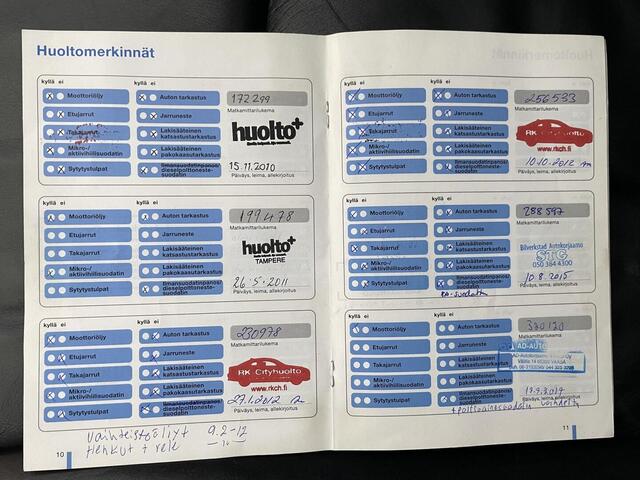 Huoltomerkinnät
kyllä ei kyllä ei
Moottoriöljy Auton tarkastus 172299
Etujarrut Jarruneste Matkamittarilukema
Takajarrut Lakisääteinen katsastustarkastus huolto+
Mikro-/aktiivihiilisuodatin Lakisääteinen pakokaasutarkastus
Sytytystulpat Ilmansuodatinpanos/dieselpolttoneste- 15.11.2010
suodatin Päiväys, leima, allekirjoitus
kyllä ei kyllä ei
Moottoriöljy Auton tarkastus 199478
Etujarrut Jarruneste Matkamittarilukema
Takajarrut Lakisääteinen katsastustarkastus huolto+
TAMPERE
Mikro-/aktiivihiilisuodatin Lakisääteinen pakokaasutarkastus
Sytytystulpat Ilmansuodatinpanos/dieselpolttoneste- 26.5.2011
suodatin Päiväys, leima, allekirjoitus
kyllä ei kyllä ei
Moottoriöljy Auton tarkastus 230978
Etujarrut Jarruneste Matkamittarilukema
Takajarrut Lakisääteinen katsastustarkastus RK Cityhuolto
Mikro-/aktiivihiilisuodatin Lakisääteinen pakokaasutarkastus www.rkch.fi
Sytytystulpat Ilmansuodatinpanos/dieselpolttoneste- 27.1.2012
suodatin Päiväys, leima, allekirjoitus
Vaihteistoöljyt 9.2-12
Hehkut + rele
10
kyllä ei kyllä ei
Moottoriöljy Auton tarkastus 256533
Etujarrut Jarruneste Matkamittarilukema
Takajarrut Lakisääteinen katsastustarkastus RK Cityhuolto
Mikro-/aktiivihiilisuodatin Lakisääteinen pakokaasutarkastus www.rkch.fi
Sytytystulpat Ilmansuodatinpanos/dieselpolttoneste- 10.10.2012
suodatin Päiväys, leima, allekirjoitus
kyllä ei kyllä ei
Moottoriöljy Auton tarkastus 288597
Etujarrut Jarruneste Matkamittarilukema
Takajarrut Lakisääteinen katsastustarkastus Bilverkstad Autokorjaamo
STG
Mikro-/aktiivihiilisuodatin Lakisääteinen pakokaasutarkastus 050 384 4300
Sytytystulpat Ilmansuodatinpanos/dieselpolttoneste- 10.8.2015
suodatin Päiväys, leima, allekirjoitus
kyllä ei kyllä ei
Moottoriöljy Auton tarkastus
Etujarrut Jarruneste Matkamittarilukema
Takajarrut Lakisääteinen katsastustarkastus
Mikro-/aktiivihiilisuodatin Lakisääteinen pakokaasutarkastus
Sytytystulpat Ilmansuodatinpanos/dieselpolttoneste-
suodatin Päiväys, leima, allekirjoitus
11